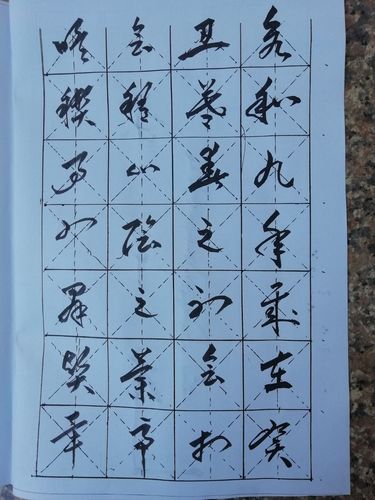 永和九年歲在癸
丑暮春之初會於
會稽山陰之蘭亭
脩禊事也群賢畢